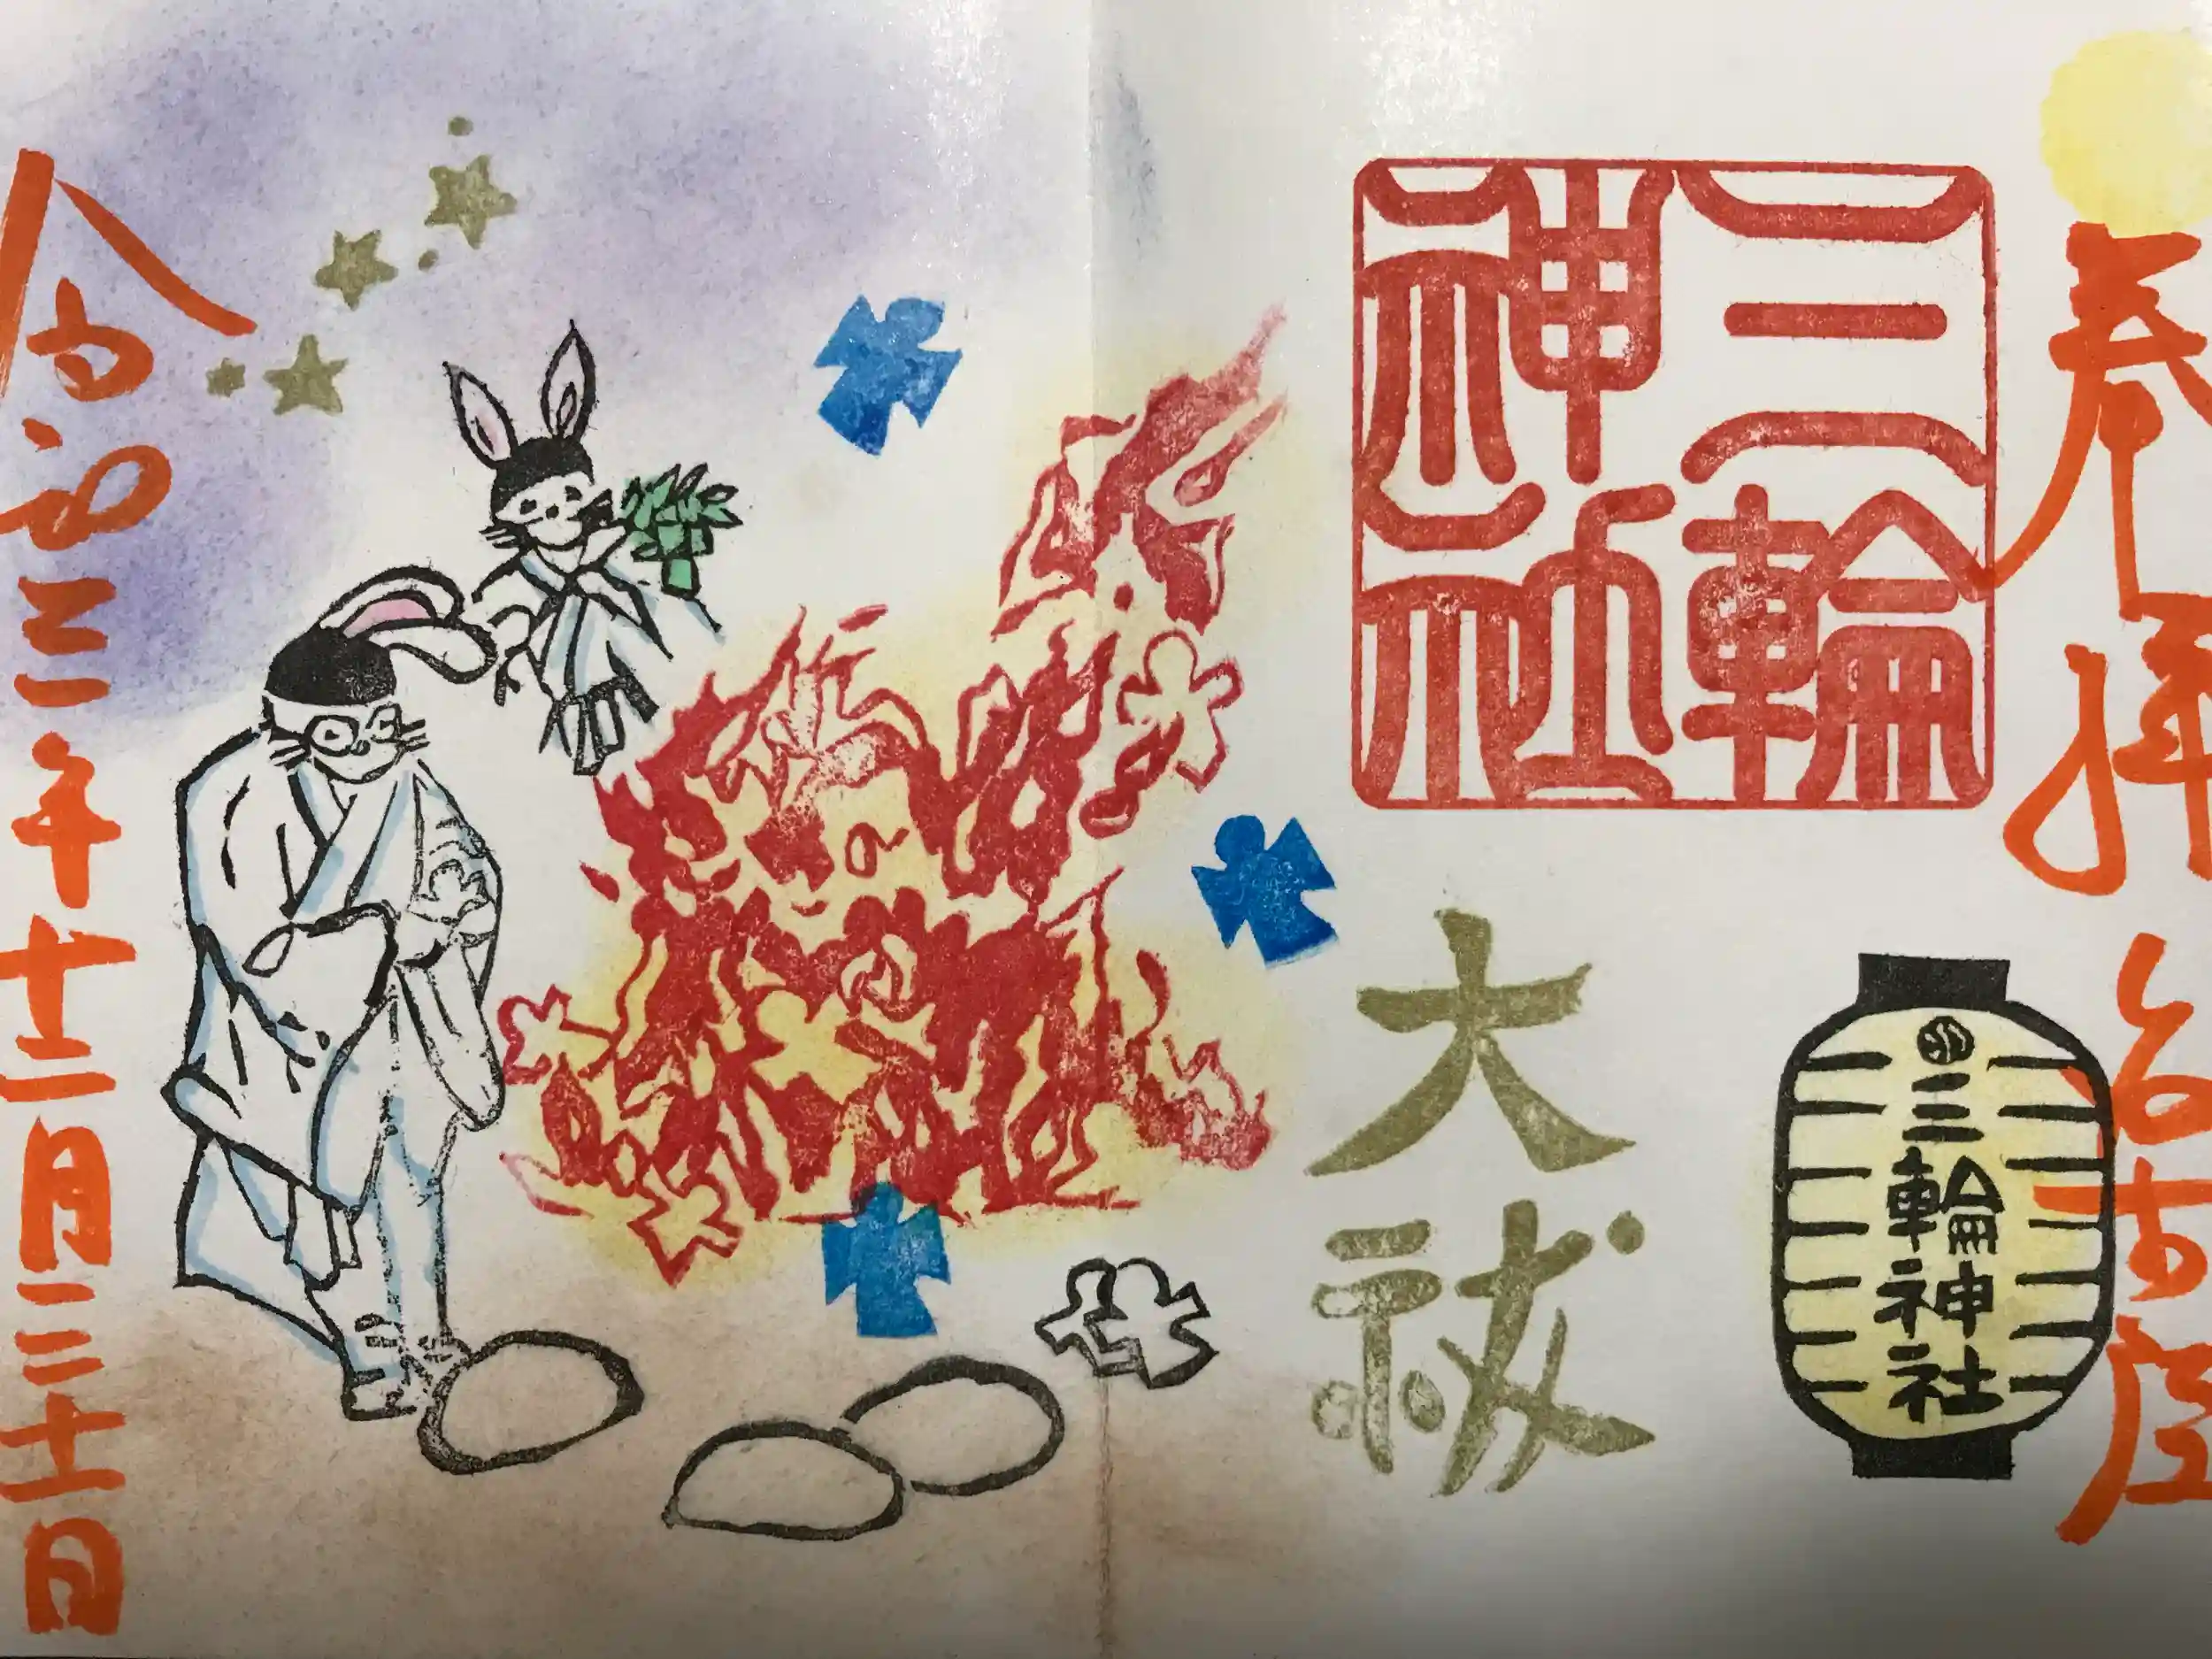 奉拝 名古屋
三輪
神社
三輪神社
大祓
令和三年十二月三十一日